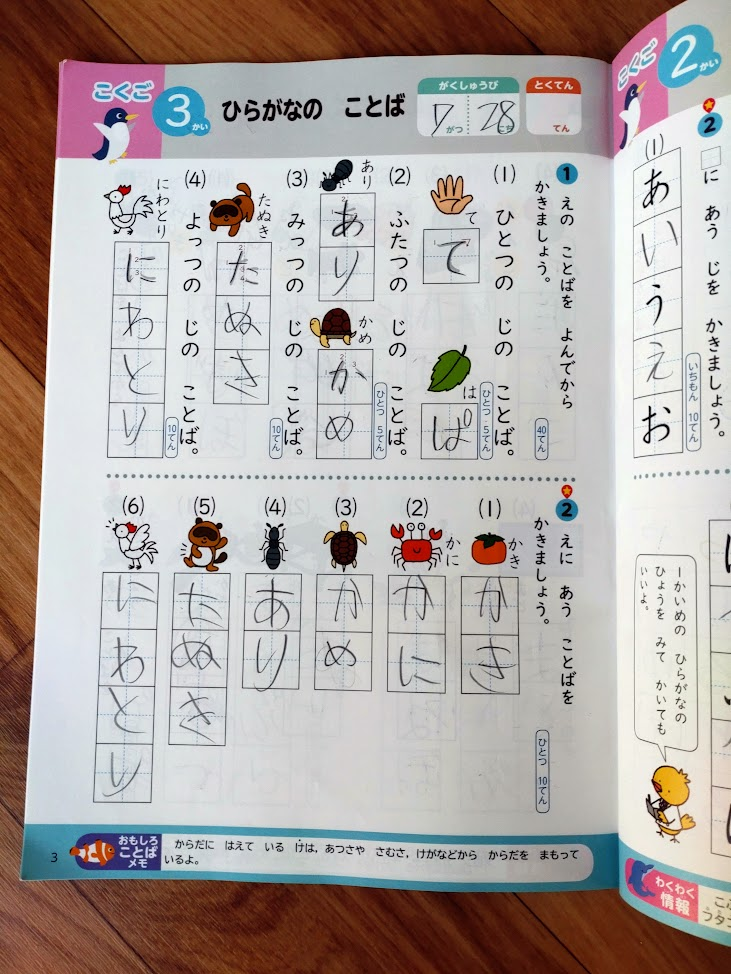 こくご
3かい
ひらがなの ことば
がくしゅうび
7がつ 28にち
とくてん
てん
1
えの ことばを よんでから
かきましょう。
40てん
(1) ひとつの じの ことば。
ひとつ 5てん
て
て
は
ぱ
(2) ふたつの じの ことば。
ひとつ 5てん
あり
あり
かめ
かめ
(3) みっつの じの ことば。
10てん
たぬき
たぬき
(4) よっつの じの ことば。
10てん
にわとり
にわとり
2
えに あう ことばを
かきましょう。
ひとつ 10てん
(1)
かき
かき
(2)
かに
かに
(3)
かめ
(4)
あり
(5)
たぬき
(6)
にわとり
3
おもしろ
ことば
メモ
からだに はえて いる けは,あつさや さむさ,けがなどから からだを まもって
いるよ。
こくご
2かい
2
□に あう じを かきましょう。
いちもん 10てん
(1)
あいうえお
1かいめの ひらがなの
ひょうを みて かいても
いいよ。
わくわく
情報